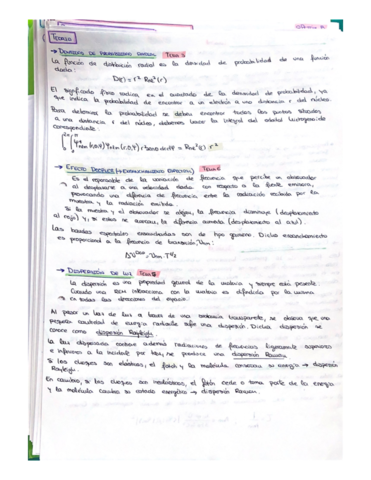 TEORÍA
→ DENSIDAD DE PROBABILIDAD RADIAL TEMA 5
La función de distribución radial es la densidad de probabilidad de una función
dada:
D(r) = r² Rnl² (r)
El significado físico radica, en el cuadrado de la densidad de probabilidad, ya
que indica la probabilidad de encontrar a un electrón a una distancia r del núcleo.
Para determinar la probabilidad se deben encontrar todos los puntos situados
a una distancia r del núcleo, debemos hacer la integral del orbital hidrogenoide
correspondiente:
→ EFECTO DOPPLER (+ ENSANCHAMIENTO ESPECTRAL) TEMA 6
Es el responsable de la variación de frecuencia que percibe un observador
al desplazarse a una velocidad dada con respecto a la fuente emisora,
provocando una diferencia de frecuencia entre la radiación recibida por la
muestra y la radiación emitida.
Si la muestra y el observador se alejan, la frecuencia disminuye (desplazamiento
al rojo) y, si estos se acercan, la diferencia aumenta (desplazamiento al azul).
Las bandas espectrales ensanchadas son de tipo gaussiano. Dicho ensanchamiento
es proporcional a la frecuencia de transición,
→ DISPERSIÓN DE LUZ TEMA 6
La dispersión es una propiedad general de la materia y siempre está presente.
Cuando una REM interacciona con la materia es difundida por la misma
en todas las direcciones del espacio.
Al pasar un haz de luz a través de una sustancia transparente, se observa que una
pequeña cantidad de energía radiante sufre una dispersión. Dicha dispersión se
conoce como dispersión Rayleigh.
La luz dispersada contiene además radiaciones de frecuencias ligeramente superiores
e inferiores a la incidente por la que se produce una dispersión Raman.
Si los choques son elásticos, el fotón y la molécula conservan su energía → dispersión
Rayleigh.
En cambio, si los choques son inelásticos, el fotón cede o toma parte de la energía
y la molécula cambia su estado energético → dispersión Raman.